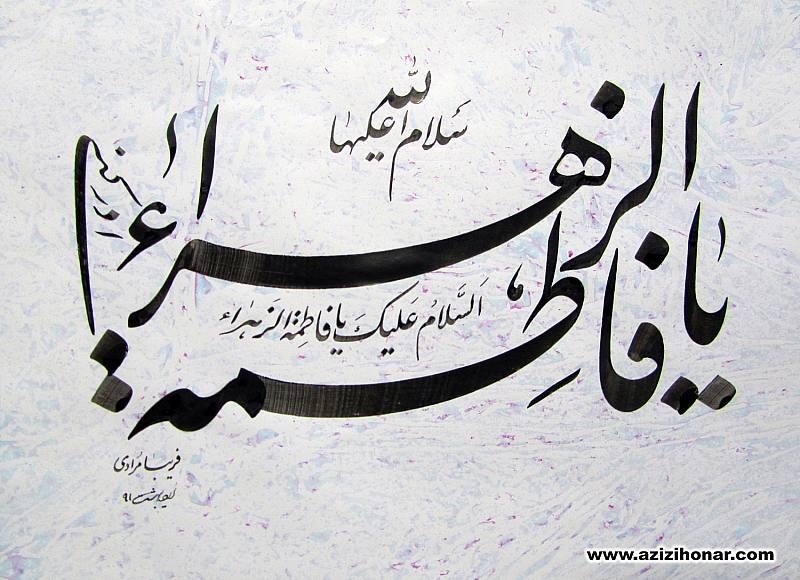 سَلامُ اللّٰه عَلیها
یا فاطمه الزهراء
اَلسَّلامُ عَلَیکَ یا فاطِمَة الزَهراء
فریبا مرادی
۹۱
www.azizihonar.com